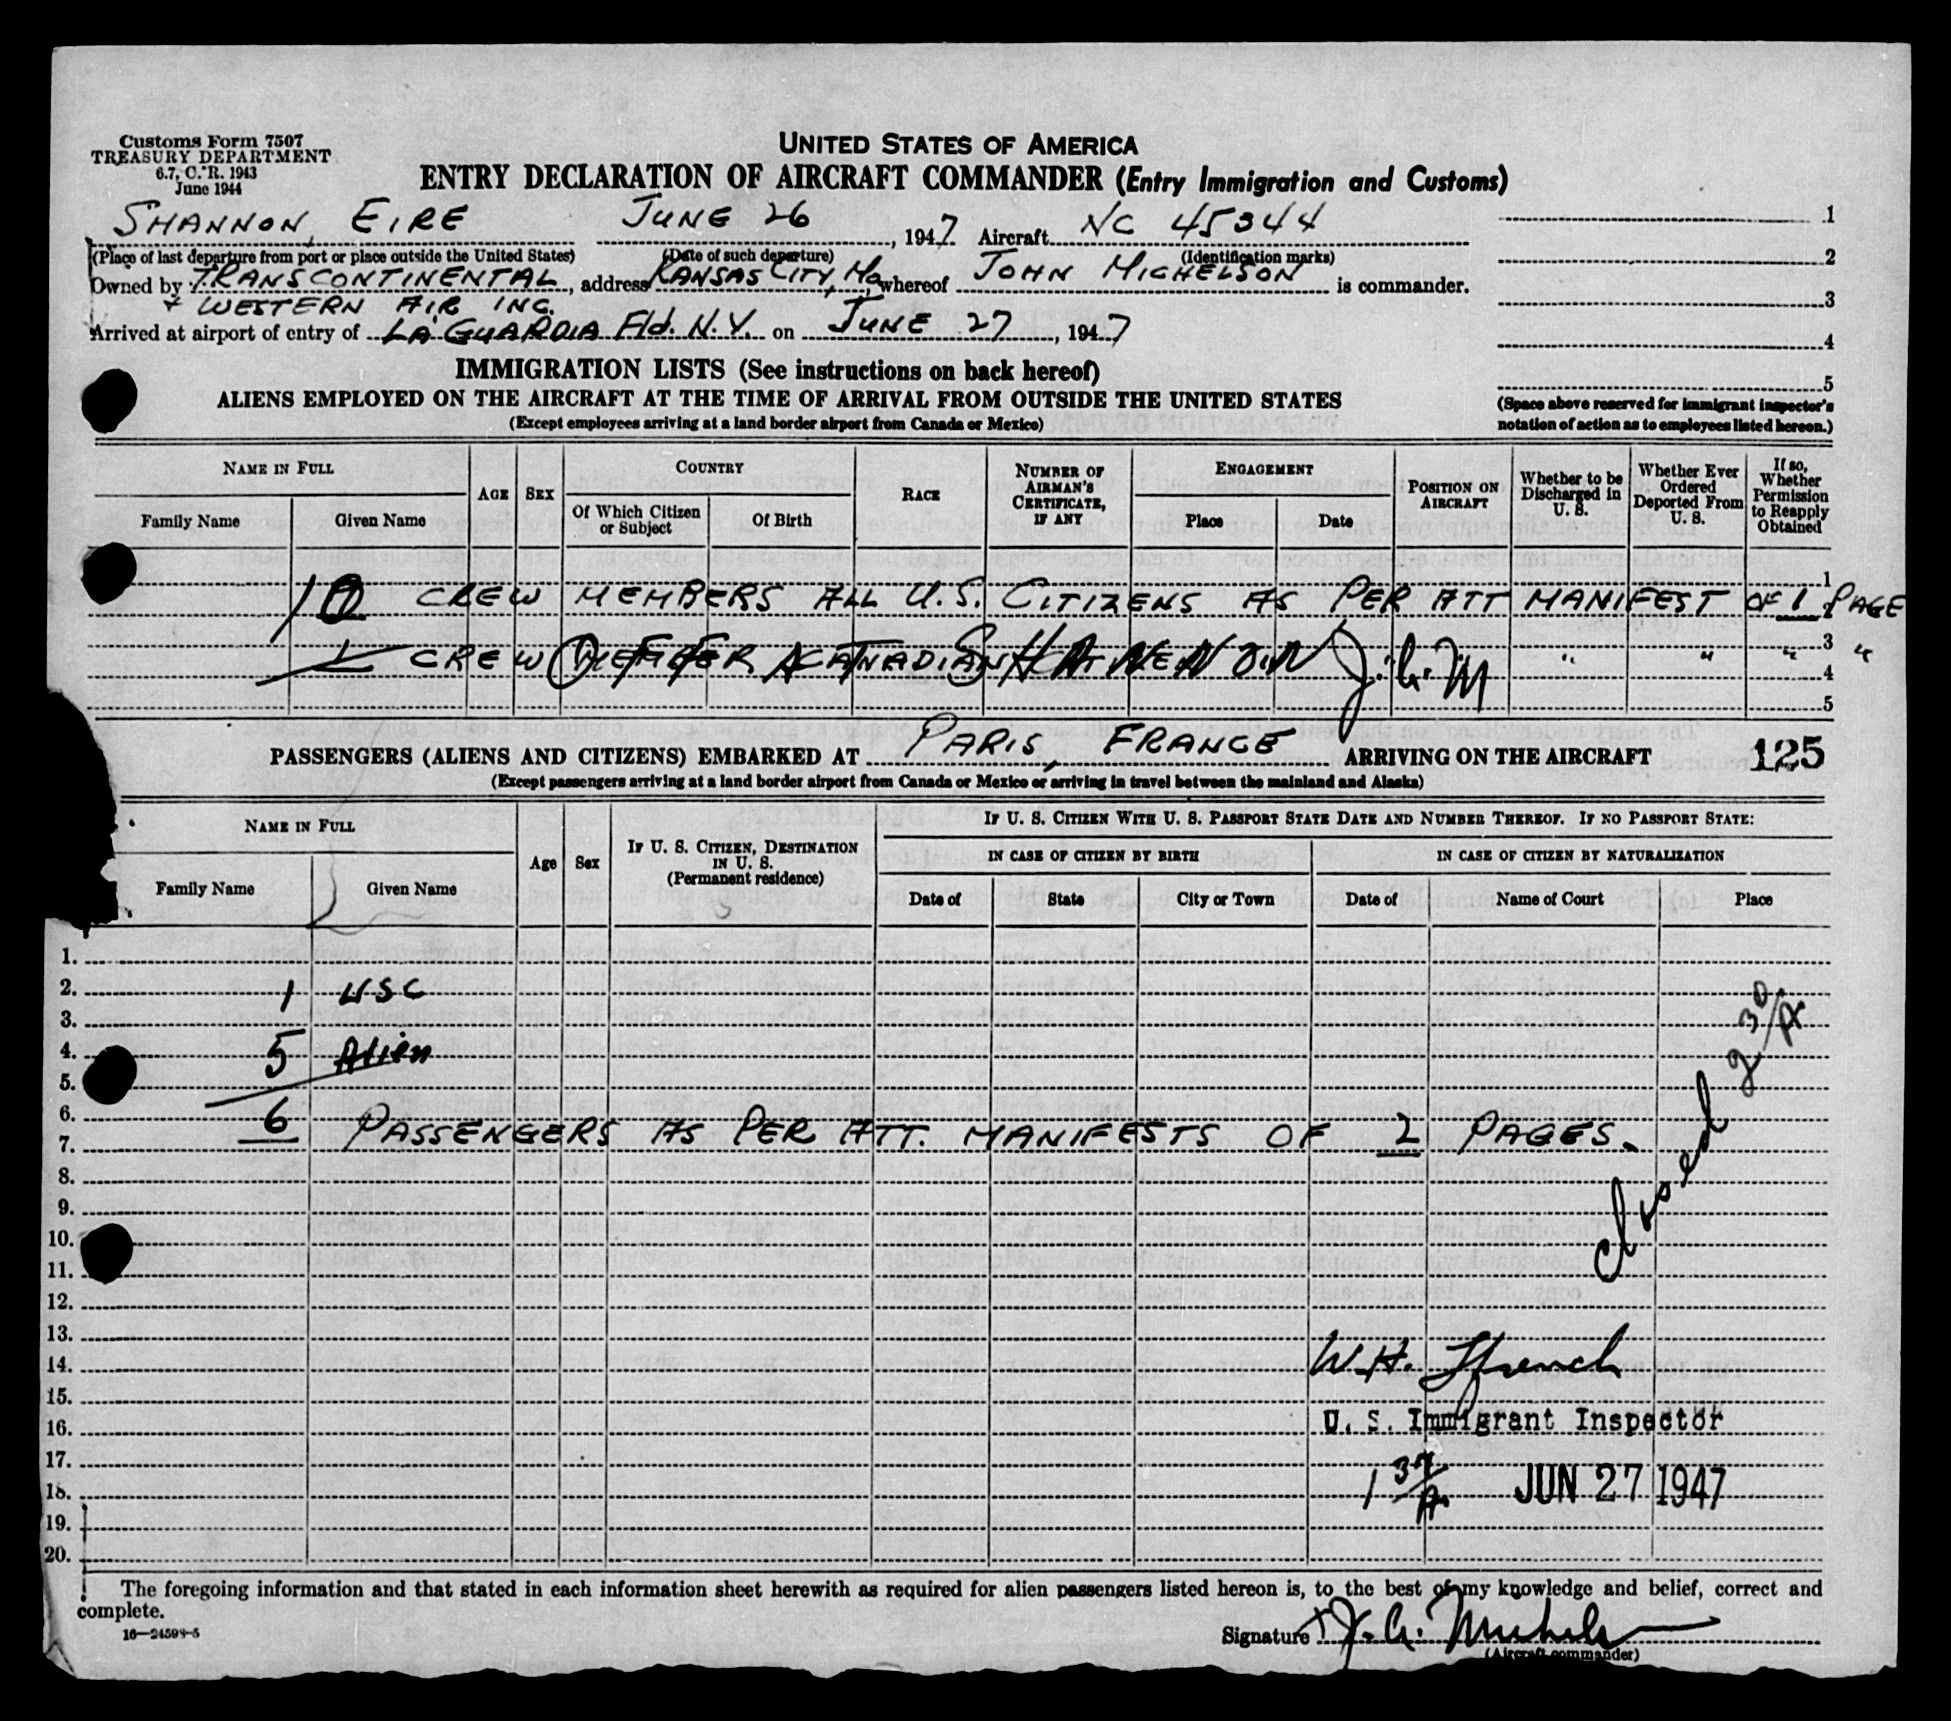 Customs Form 7507
TREASURY DEPARTMENT
6.7, C. R. 1943
June 1944
UNITED STATES OF AMERICA
ENTRY DECLARATION OF AIRCRAFT COMMANDER (Entry Immigration and Customs)
SHANNON, EIRE JUNE 26, 1947 Aircraft NC 45344
(Place of last departure from port or place outside the United States) (Date of such departure) (Identification marks)
Owned by TRANSCONTINENTAL, address KANSAS CITY, Mo, whereof JOHN MICHELSON is commander.
& WESTERN AIR INC.
Arrived at airport of entry of LA GUARDIA Fld. N.Y. on JUNE 27, 1947
1
2
3
4
5
(Space above reserved for immigrant inspector's
notation of action as to employees listed hereon.)
IMMIGRATION LISTS (See instructions on back hereof)
ALIENS EMPLOYED ON THE AIRCRAFT AT THE TIME OF ARRIVAL FROM OUTSIDE THE UNITED STATES
(Except employees arriving at a land border airport from Canada or Mexico)
NAME IN FULL
Family Name
Given Name
AGE
SEX
COUNTRY
Of Which Citizen or Subject
Of Birth
RACE
NUMBER OF AIRMAN'S CERTIFICATE, IF ANY
ENGAGEMENT
Place
Date
POSITION ON AIRCRAFT
Whether to be Discharged in U. S.
Whether Ever Ordered Deported From U. S.
If so, Whether Permission to Reapply Obtained
1
10 CREW MEMBERS ALL U.S. CITIZENS AS PER ATT MANIFEST OF 1 PAGE
3
1 CREW MEMBER CANADIAN CITIZEN " " " "
OFF AT SHANNON J.A.M
4
5
PASSENGERS (ALIENS AND CITIZENS) EMBARKED AT PARIS, FRANCE ARRIVING ON THE AIRCRAFT 125
(Except passengers arriving at a land border airport from Canada or Mexico or arriving in travel between the mainland and Alaska)
NAME IN FULL
Family Name
Given Name
Age
Sex
IF U. S. CITIZEN, DESTINATION IN U. S.
(Permanent residence)
IF U. S. CITIZEN WITH U. S. PASSPORT STATE DATE AND NUMBER THEREOF. IF NO PASSPORT STATE:
IN CASE OF CITIZEN BY BIRTH
IN CASE OF CITIZEN BY NATURALIZATION
Date of
State
City or Town
Date of
Name of Court
Place
1.
2. 1 USC
3.
4. 5 Alien
5.
6.
7. 6 PASSENGERS AS PER ATT. MANIFESTS OF 2 PAGES.
8.
9.
10.
11.
12.
13.
14.
15.
16.
17.
18.
19.
20.
Closed 2 30/A
W.H. French
U. S. Immigrant Inspector
1 37/A. JUN 27 1947
The foregoing information and that stated in each information sheet herewith as required for alien passengers listed hereon is, to the best of my knowledge and belief, correct and
complete.
16—24598-5
Signature X J. A. Michelson
(Aircraft commander)